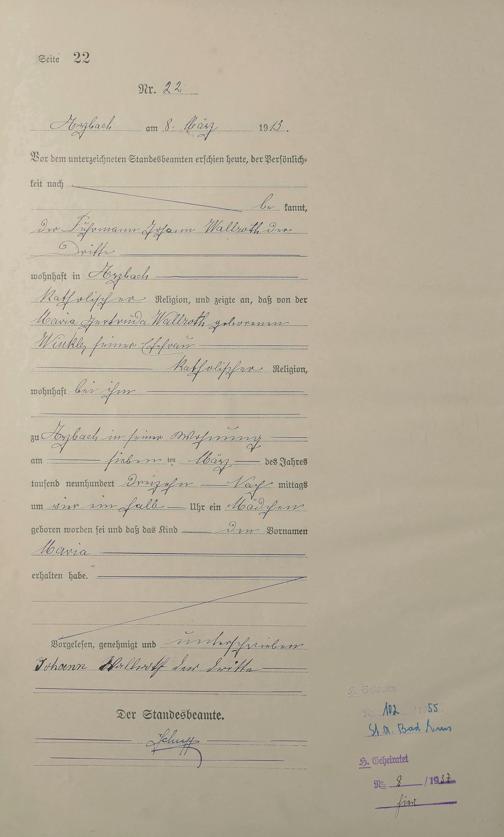 Seite 22
Nr. 22
Arzbach am 8. März 1913.
Vor dem unterzeichneten Standesbeamten erschien heute, der Persönlich-
keit nach
be kannt,
der Fuhrmann Johann Wallroth der
Dritte
wohnhaft in Arzbach
katholischer Religion, und zeigte an, daß von der
Maria Gertruda Wallroth geborenen
Winkle, seiner Ehefrau
katholischer Religion,
wohnhaft bei ihm
zu Arzbach in seiner Wohnung
am sieben ten März des Jahres
tausend neunhundert dreizehn Nach mittags
um vier ein halb Uhr ein Mädchen
geboren worden sei und daß das Kind den Vornamen
Maria
erhalten habe.
Vorgelesen, genehmigt und unterschrieben
Johann Wallroth der dritte
Der Standesbeamte.
102 55
St. A. Bad Ems
H. Geheiratet
Nr. 8 / 1937
hier